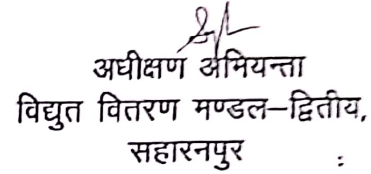 अधीक्षण अभियन्ता
विद्युत वितरण मण्डल–द्वितीय,
सहारनपुर
: